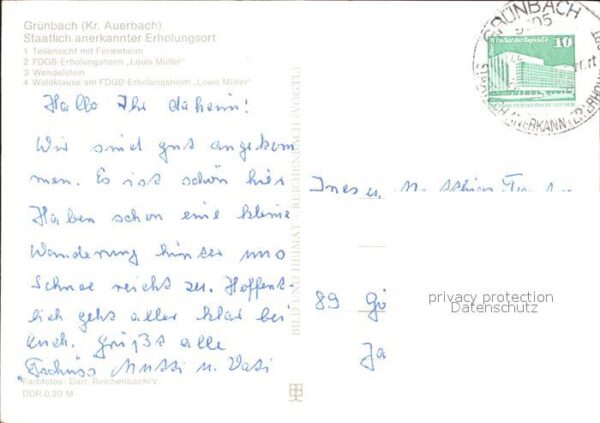 Grünbach (Kr. Auerbach)
Staatlich anerkannter Erholungsort
1 Teilansicht mit Ferienheim
2 FDGB-Erholungsheim „Louis Müller"
3 Wendelstein
4 Waldklause am FDGB-Erholungsheim „Louis Müller"
Hallo Ihr daheim!
Wir sind gut angekom
men. Es ist schön hier
Haben schon eine kleine
Wanderung hinter uns
Schnee reicht zu. Hoffent-
lich geht alles klar bei
euch. Grüßt alle
Tschüss Mutti u. Vati
Farbfotos: Darr, Reichenbach/V.
DDR 0,20 M
BILD UND HEIMAT · REICHENBACH (VOGTL)
GRÜNBACH
9705
STAATLICH ANERKANNTER ERHO
10
DDR
Ines u.
89 Gö
Ja
privacy protection
Datenschutz